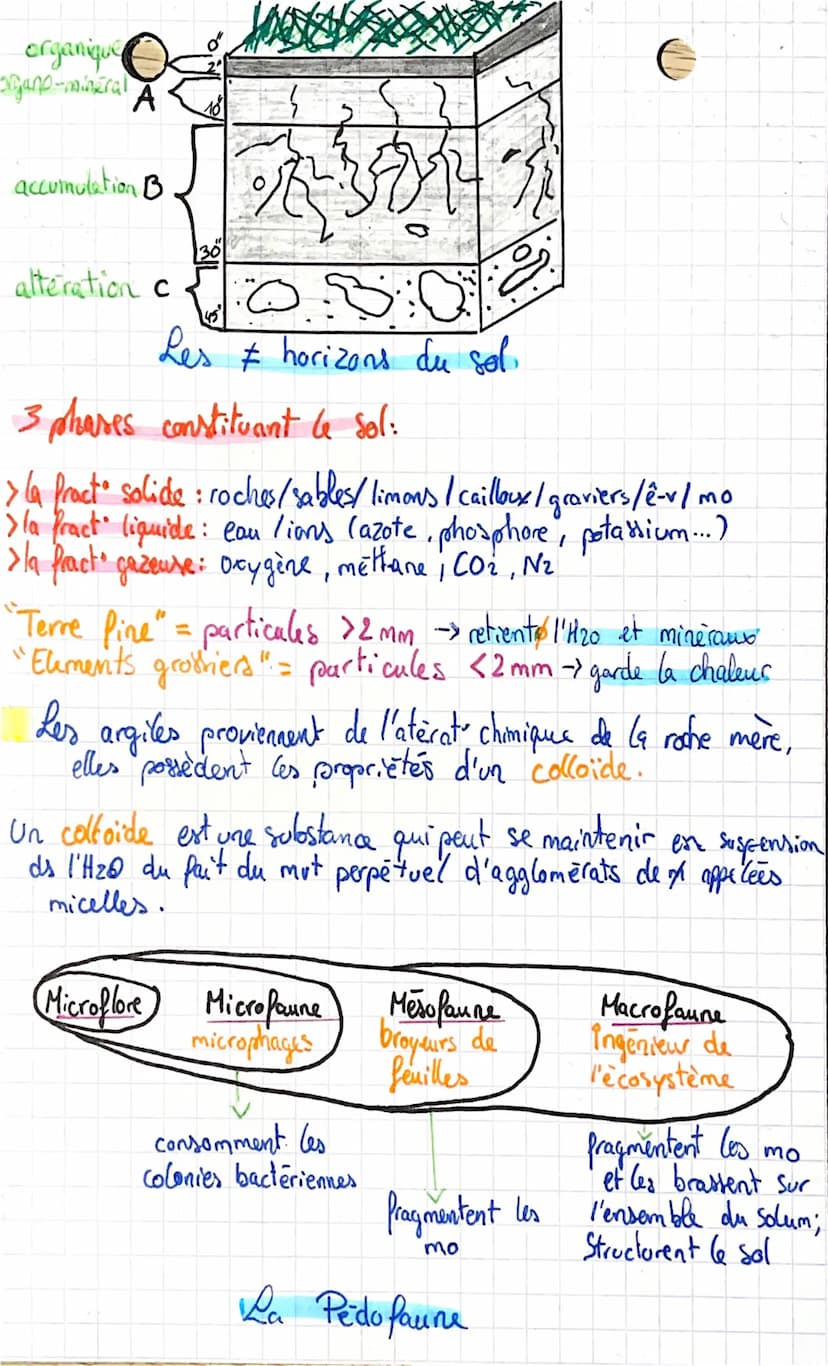 organique
0"
2"
organo-minéral
A
10"
accumulation B
30"
altération C
45"
Les ≠ horizons du sol.
3 phases constituant le sol:
> la fract° solide : roches/sables/limons/cailloux/graviers/ê-v/mo
> la fract° liquide : eau/ions (azote, phosphore, potassium...)
> la fract° gazeuse : oxygène, méthane, CO2, N2
"Terre fine" = particules >2mm -> retient l'H2O et minéraux
"Elements grossiers" = particules <2mm -> garde la chaleur
Les argiles proviennent de l'atérat° chimique de la roche mère,
elles possèdent les propriétés d'un colloïde.
Un colloïde est une substance qui peut se maintenir en suspension
ds l'H2O du fait du mvt perpétuel d'agglomérats de appelées
micelles.
Microflore Microfaune Mésofaune Macrofaune
microphages broyeurs de Ingénieur de
feuilles l'écosystème
consomment les
colonies bactériennes
fragmentent les
mo
fragmentent les mo
et les brassent sur
l'ensemble du solum;
Structurent le sol
La Pédofaune